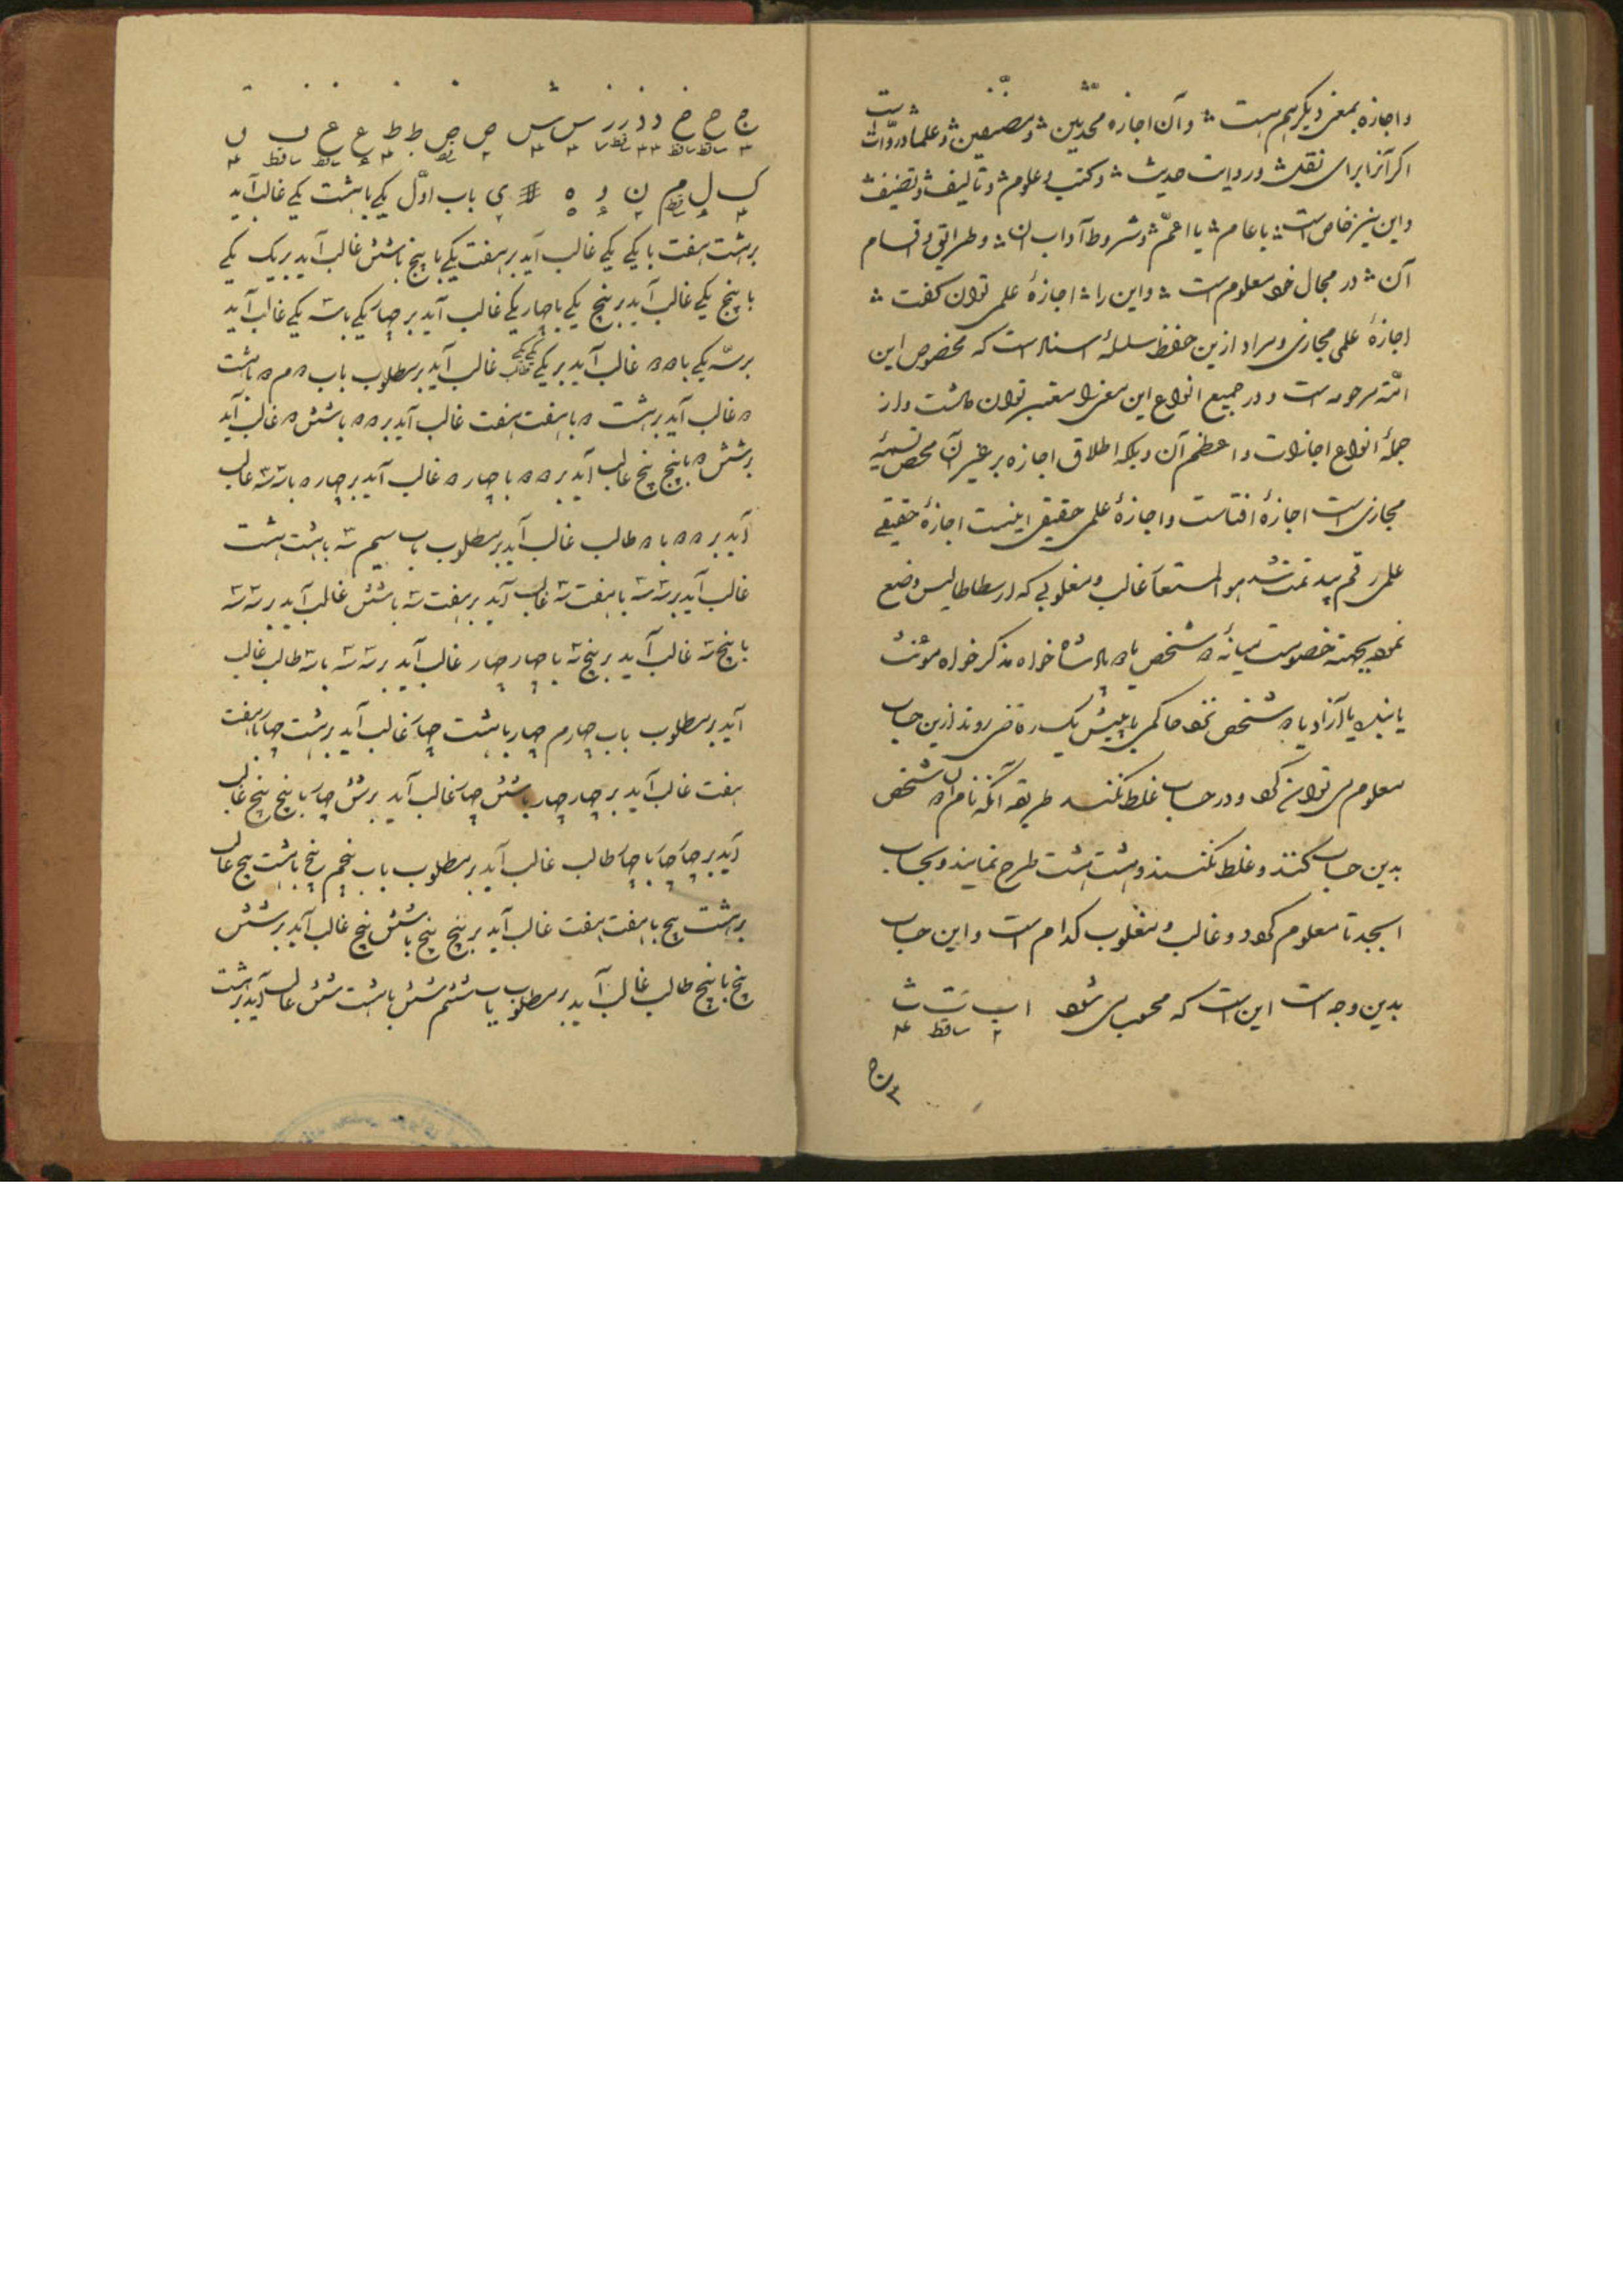 و اجازه بمعنی دیگر هم هست و آن اجازه محدثین و مصنفین و علما و روات است
اگر آنرا برای نقل و روایت حدیث و کتب و علوم و تالیف و تصنیف
و این نیز خاص است یا عام یا اعم و شروط آداب ان و طرایق و اقسام
آن در مجال خود معلوم است و این را اجازهٔ علمی توان کفت
اجازهٔ علمی مجازی و مراد ازین حفظ سلسلهٔ اسناد است که مخصوص این
امّة مرحومه است و در جمیع انواع این معنی را معتبر توان داشت و از
جملهٔ انواع اجازات و اعظم آن دیکه اطلاق اجازه بر غیر آن محض تسمیهٔ
مجازی است اجازهٔ افتاست و اجازهٔ علمی حقیقی اینست اجازهٔ حقیقی
علمی رقم پید تمت شد هو المستعان غالب و مغلوبی که ارسطاطالیس وضع
نموده بجهته خصومت میانهٔ ۲ شخص یا ۲ پادشاه خواه مذکر خواه مؤنث
یا بنده یا آزاد یا ۲ شخص نزد حاکمی یا پیش یک قاضی روند ازین حساب
معلوم می توان کرد و در حساب غلط نکنند طریقه آنکه نام ان ۲ شخص
بدین حساب کنند و غلط نکنند و هشت هشت طرح نمایند و بحساب
ابجد تا معلوم کردد و غالب و مغلوب کدام است و این حساب
بدین وجه است این است که محسوب می شود ا ب ت ث
۲ ساقط ۴
ج ح خ د ذ ر ز س ش ص ض ط ظ ع غ ف ق
ک ل م ن و ه ی باب اوّل یکی با هشت یکی غالب آید
بر هشت هفت با یکی یکی غالب آید بر هفت یکی با پنج با شش غالب آید بر یک یکی
با پنج یکی غالب آید بر پنج یکی با چهار یکی غالب آید بر چهار یکی با سه یکی غالب آید
بر سه یکی با ۲ ۲ غالب آید بر یکی یکی یکی طالب غالب آید بر مطلوب باب ۲ م ۲ با هشت
۲ غالب آید بر هشت ۲ با هفت هفت غالب آید بر ۲ ۲ با شش ۲ غالب آید
بر شش ۲ با پنج پنج غالب آید بر ۲ ۲ با چهار ۲ غالب آید بر چهار ۲ با سه سه غالب
آید بر ۲ ۲ با ۲ طالب غالب آید بر مطلوب باب سیم سه با هشت هشت
غالب آید بر سه سه با هفت سه غالب آید بر هفت سه با شش غالب آید بر سه سه
با پنج سه غالب آید بر پنج سه با چهار چهار غالب آید بر سه سه با سه طالب غالب
آید بر مطلوب باب چهارم چهار با هشت چهار غالب آید بر هشت چهار با هفت
هفت غالب آید بر چهار چهار با شش چهار غالب آید بر شش چهار با پنج پنج غالب
آید بر چهار چهار با چهار طالب غالب آید بر مطلوب باب پنجم پنج با هشت پنج غالب
بر هشت پنج با هفت هفت غالب آید بر پنج پنج با شش پنج غالب آید بر شش
پنج با پنج طالب غالب آید بر مطلوب باب ششم شش با هشت شش غالب آید بر هشت